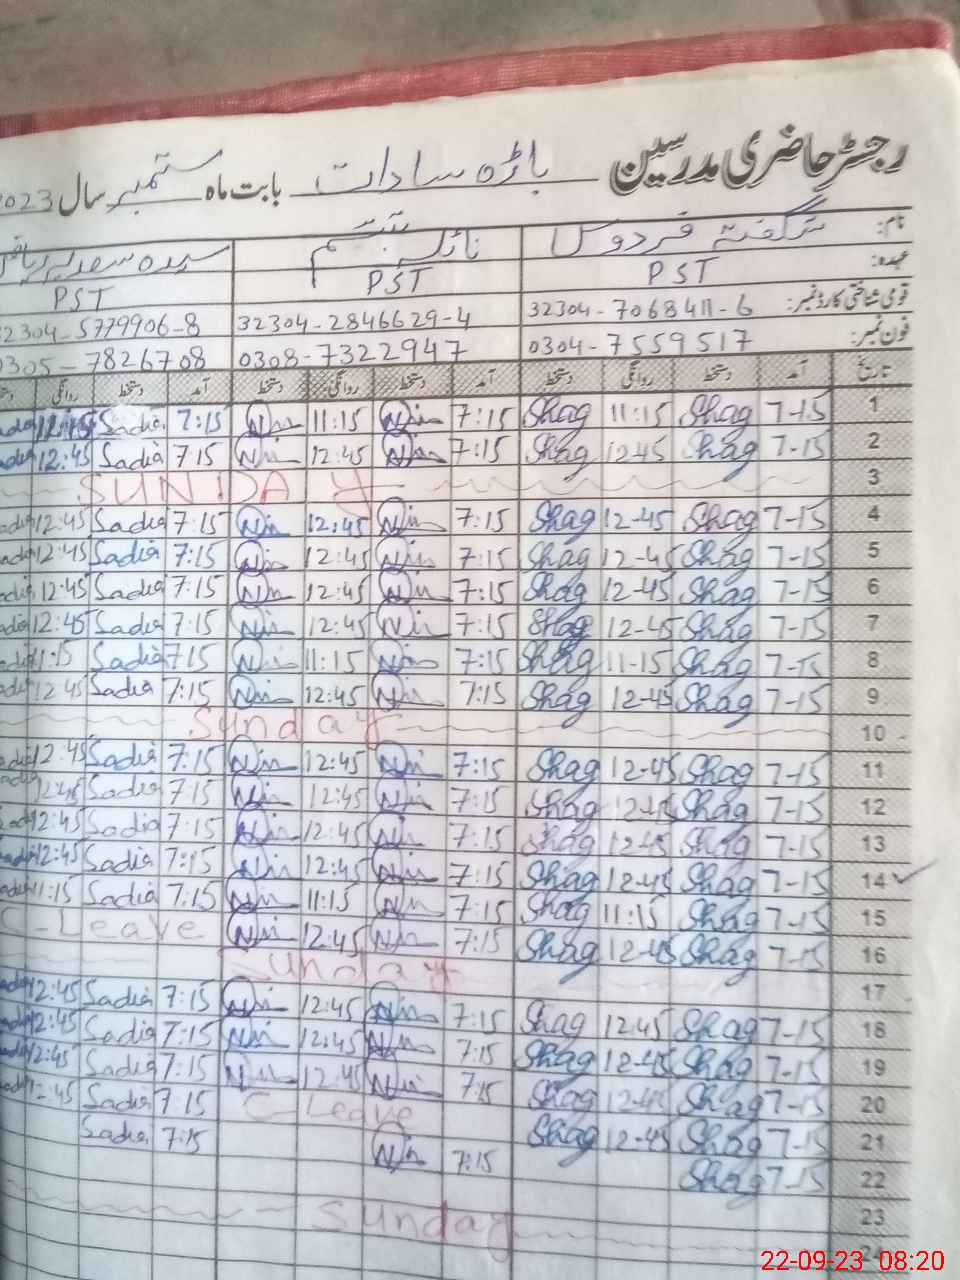 رجسٹر حاضری مدرسین باڑہ سادات بابت ماہ ستمبر سال 2023
نام: شگفتہ فردوس نائلہ تبسم سیدہ سعدیہ
عہدہ: PST PST PST
قومی شناختی کارڈ نمبر: 32304-7068411-6 32304-2846629-4 32304-5779906-8
فون نمبر: 0304-7559517 0308-7322947 0305-7826708
تاریخ آمد دستخط روانگی دستخط آمد دستخط روانگی دستخط آمد دستخط روانگی
1 7-15 Shag 11:15 Shag 7:15 Nin 11:15 Nin 7:15 Sadia
2 7-15 Shag 12:45 Shag 7:15 Nin 12:45 Nin 7:15 Sadia 12:45
3 SUNDAY
4 7-15 Shag 12-45 Shag 7:15 Nin 12:45 Nin 7:15 Sadia 12:45
5 7-15 Shag 12-45 Shag 7:15 Nin 12:45 Nin 7:15 Sadia 12:45
6 7-15 Shag 12-45 Shag 7:15 Nin 12:45 Nin 7:15 Sadia 12:45
7 7-15 Shag 12-45 Shag 7:15 Nin 12:45 Nin 7:15 Sadia 12:45
8 7-15 Shag 11-15 Shag 7:15 Nin 11:15 Nin 7:15 Sadia 11:15
9 7-15 Shag 12-45 Shag 7:15 Nin 12:45 Nin 7:15 Sadia 12:45
10 Sunday
11 7-15 Shag 12-45 Shag 7:15 Nin 12:45 Nin 7:15 Sadia 12:45
12 7-15 Shag 12-45 Shag 7:15 Nin 12:45 Nin 7:15 Sadia 12:45
13 7-15 Shag 12-45 Shag 7:15 Nin 12:45 Nin 7:15 Sadia 12:45
14 7-15 Shag 12-45 Shag 7:15 Nin 12:45 Nin 7:15 Sadia 12:45
15 7-15 Shag 11:15 Shag 7:15 Nin 11:15 Nin 7:15 Sadia 11:15
16 7-15 Shag 12-45 Shag 7:15 Nin 12:45 Nin C-Leave
17 Sunday
18 7-15 Shag 12:45 Shag 7:15 Nin 12:45 Nin 7:15 Sadia 12:45
19 7-15 Shag 12-45 Shag 7:15 Nin 12:45 Nin 7:15 Sadia 12:45
20 7-15 Shag 12-45 Shag 7:15 Nin 12:45 Nin 7:15 Sadia 12:45
21 7-15 Shag 12-45 Shag C-Leave 7:15 Sadia 12:45
22 7-15 Shag 7:15 Nin 7:15 Sadia
23
24 Sunday
22-09-23 08:20